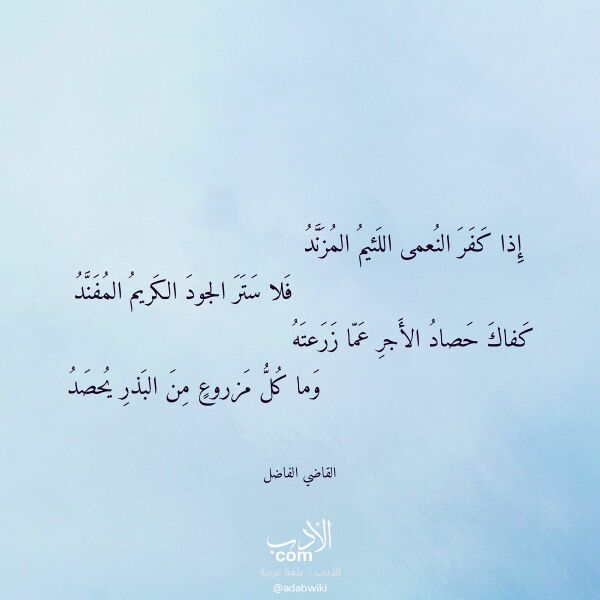 إِذا كَفَرَ النُعمى اللَئيمُ المُزَنَّدُ
فَلا سَتَرَ الجودَ الكَريمُ المُفَنَّدُ
كَفاكَ حَصادُ الأَجرِ عَمّا زَرَعتَهُ
وَما كُلُّ مَزروعٍ مِنَ البَذرِ يُحصَدُ
القاضي الفاضل
الأدب
com
الأدب .. بلغة عربية
@adabwiki